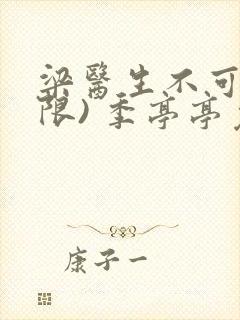 梁醫生不可
限)季亭亭
康子一